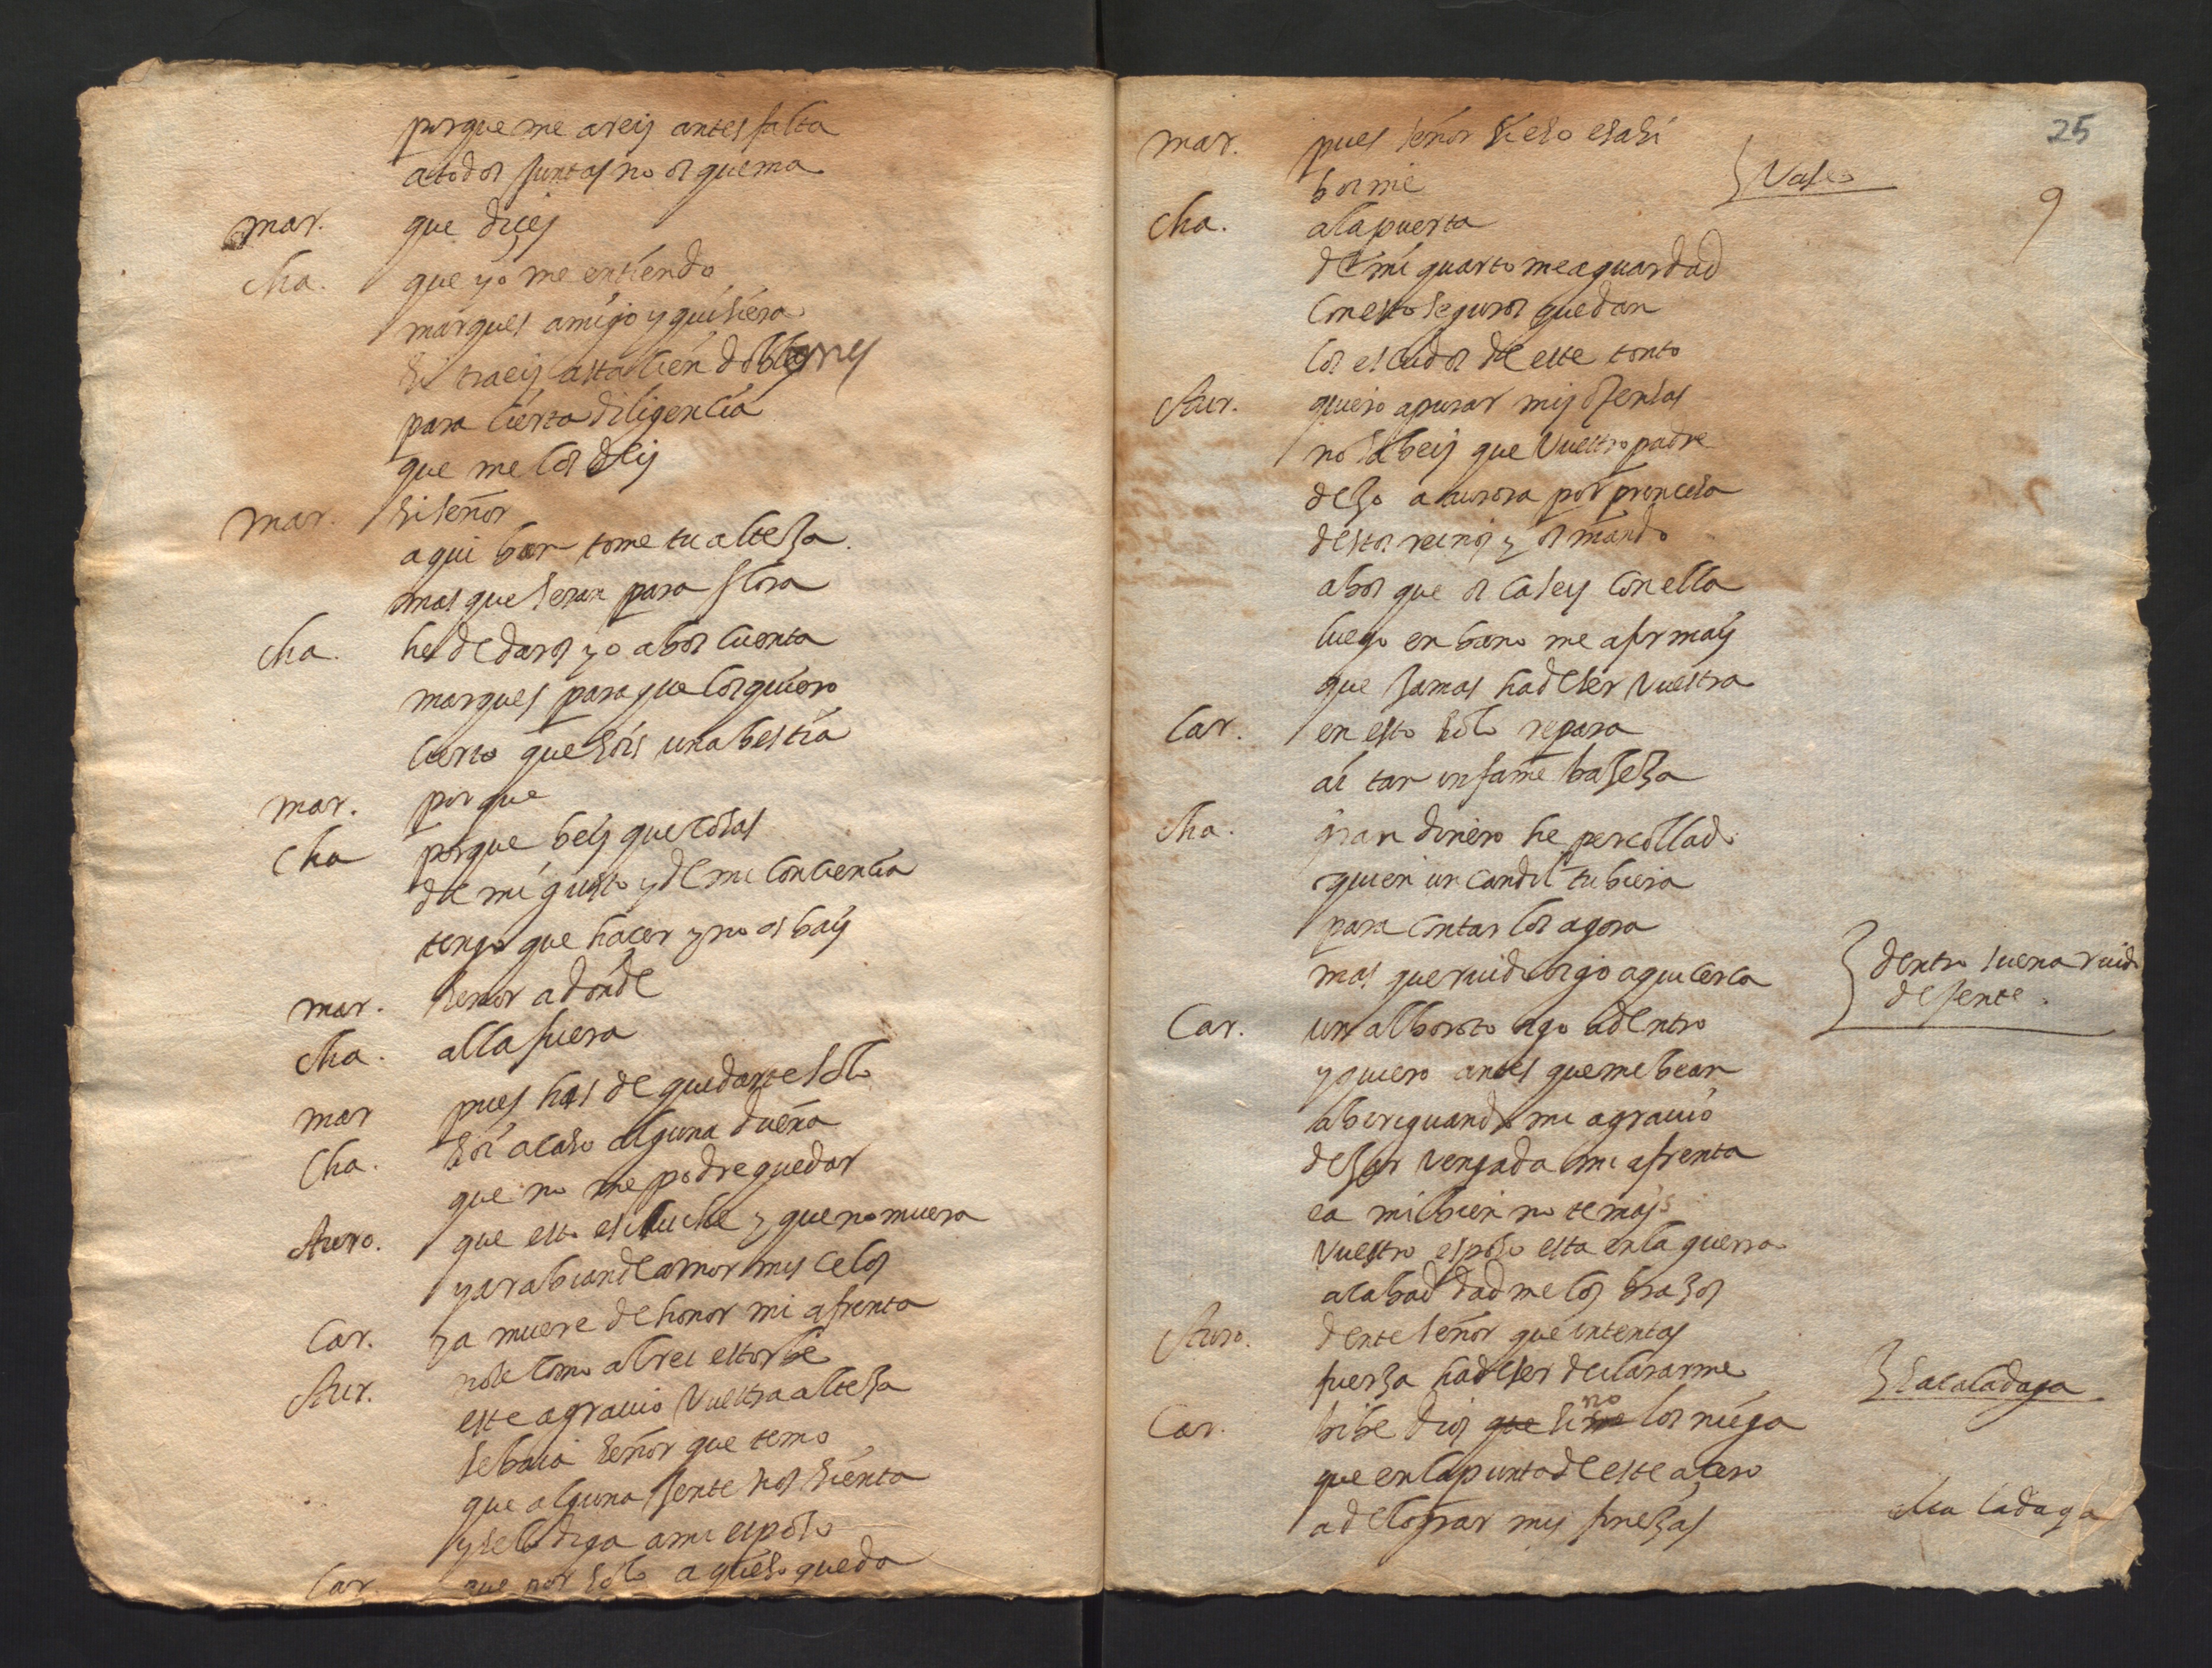 porque me areis antes falta
a todos juntas no os quema
mar. que diçes
cha. que yo me entiendo
marques amigo y quisiera
si traeis asta cien doblones
para cierta diligencia
que me los deis
mar. si señor
aqui ban tome tu alteza
mas que seran para flora
cha. he de daros yo a bos cuenta
marques para que los quiero
cierto que sois una bestia
mar. por que
cha porque beis que cosas
de mi gusto y de mi conciencia
tengo que hacer y no os bais
mar. señor a donde
cha. alla fuera
mar pues has de quedarte solo
cha. soi acaso alguna dueña
que no me podre quedar
Auro. que esto escuche y que no muera
ya rabian de amor mis celos
Car. ya muere de honor mi afrenta
Aur. no se como al rei estorbe
este agrauio Vuestra alteza
se baia señor que temo
que alguna jente nos sienta
y se lo diga a mi esposo
Car. que por solo aqueso queda
25
9
mar. pues señor si eso es asi
boime } Vase
cha. a la puerta
de mi quarto me aguardad
con esto seguros quedan
los escudos de este tonto
Aur. quiero apurar mis ofensas
no sabeis que Vuestro padre
dejo a aurora por princesa
destos reinos y os mando
a bos que os caseis con ella
luego en bano me afirmais
que jamas ha de ser Vuestra
Car. en esto solo repara
ai tan infame bajeza
cha. gran dinero he percollado
quien un candil tubiera
para contarlos agora
mas que ruido oigo aqui cerca } dentro suena ruido
de jente.
Car. un alboroto oigo adentro
y quiero antes que me bean
aberiguando mi agrauio
dejar vengada mi afrenta
ea mi bien no temais
Vuestro esposo esta en la guerra
acabad dadme los brazos
Auro. dente señor que intentas
fuerza ha de ser declararme } Saca la daga
Car. bibe dios que si no los niega
que en la punta de este açero
a de lograr mis finezas
cha la daga